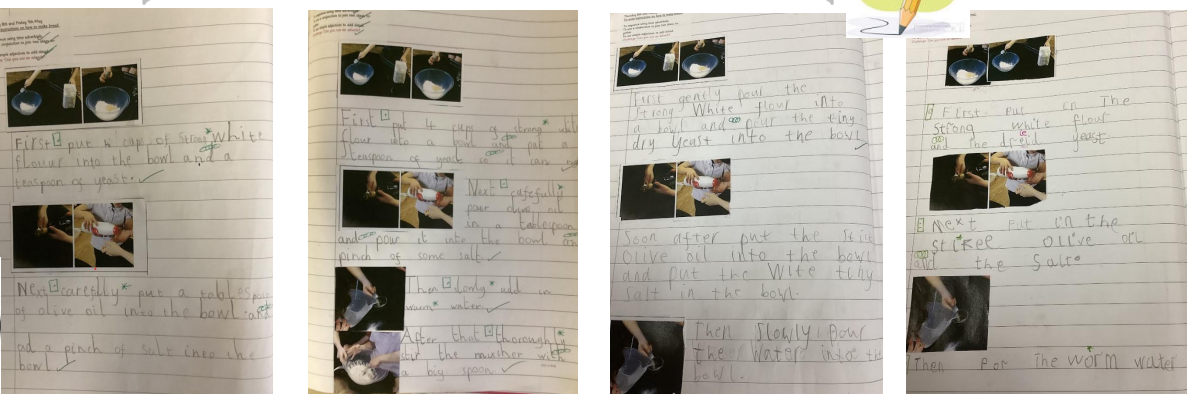 First, put 4 cups of strong White
flour into the bowl and a
teaspon of yeast.
Next, careflly put a tablespoon
of olive oil into the bowl and
ad a pinch of salt into the
bowl
First, put 4 cups of strong whit
flour into a bowl and put a
teaspon of yeast so it can
Next, carefully
pour olive oil
in a tablespoon
and pour it into the bowl and
pinch of some salt.
Then, slowly add in
warm water.
After that, thoroughly
stir the mixsher with
a big spoon
First gently pour the
strong White flour into
a bowl and pour the tiny
dry yeast into the bowl
Soon after put the
Olive oil into the bowl
and put the Wite tiny
salt in the bowl.
Then slowly pour
the Water into the
bowl.
First. Put in The
Strong white flour
and the dreid yeast
Next Put in the
olive oil
and the Salt.
Then Por the worm water